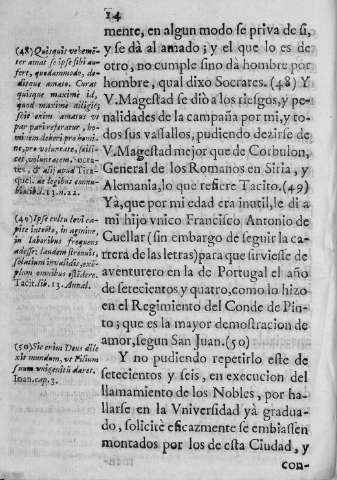 14
mente, en algun modo se priva de sì,
y se dà al amado; y el que lo es de
otro, no cumple sino dà hombre por
hombre, qual dixo Socrates. (48) Y
V. Magestad se diò a los riesgos, y pe-
nalidades de la campaña por mi, y to-
dos sus vassallos, pudiendo dezirse de
V. Magestad mejor que de Corbulon,
General de los Romanos en Siria, y
Alemania, lo que refiere Tacito. (49)
Ya, que por mi edad era inutil, le di a
mi hijo vnico Francisco Antonio de
Cuellar (sin embargo de seguir la ca-
rrera de las letras) para que sirviesse de
aventurero en la de Portugal el año
de setecientos y quatro, como lo hizo
en el Regimiento del Conde de Pin-
to; que es la mayor demostracion de
amor, segun San Juan. (50)
Y no pudiendo repetirlo este de
setecientos y seis, en execucion del
llamamiento de los Nobles, por ha-
llarse en la Vniversidad yà gradua-
do, solicitè eficazmente se embiassen
montados por los de esta Ciudad, y
con-
(48) Quisquis vehemè-
ter amat se ipse sibi au-
fert, quodammodo, de-
ditque amato. Cum
quisque maxime id,
quod maximè diligit;
scit enim amatus vt
par pari referatur, ho-
minem deberi pro homi-
ne, pro voluntate, scili-
cet, voluntatem, Socra-
tes, & alij apud Tira-
quel. de legibus connu-
bialib. l. 13. n. 12.
(49) Ipse cultu levi ca-
pite intecto, in agmine,
in laboribus frequens
adesse: laudem strenuis,
solatium invalidis, exẽ-
plum omnibus ostẽdere.
Tacit. lib. 13. Annal.
(50) Sic enim Deus dile-
xit mundum, vt Filium
suum vnigenitũ daret.
Ioan. cap. 3.